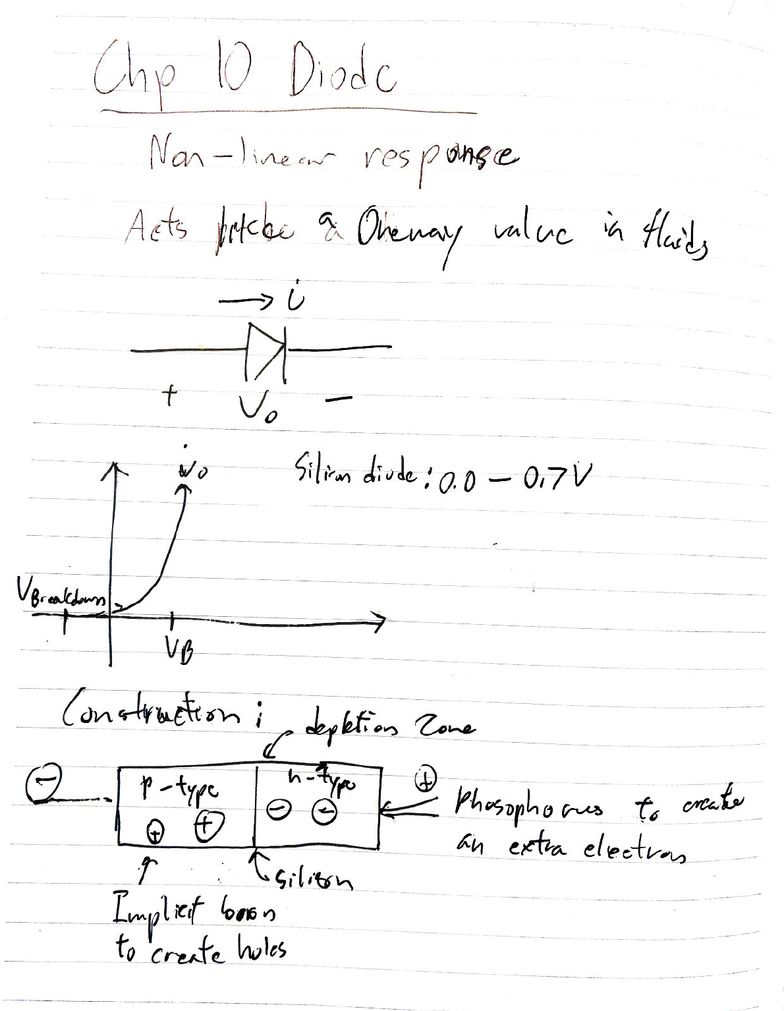 Chp 10 Diode
Non-linear response
Acts a Oneway value in fluids
→ i
+ V₀ −
i
Silicon diode: 0.0 – 0.7V
V Breakdown
V B
Construction:
depletion zone
−
p-type
n-type
+
+ +
− −
Phosophorus to create
an extra electron
silicon
Implicit boron
to create holes